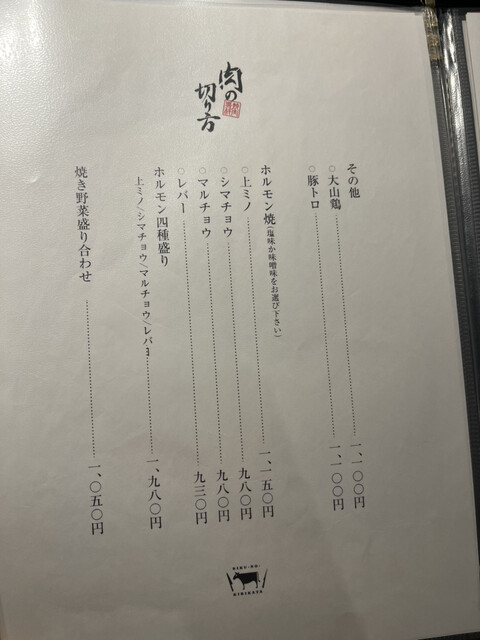 肉の
切り方
その他
○大山鶏 一、一〇〇円
○豚トロ 一、一〇〇円
ホルモン焼(塩味か味噌味をお選び下さい)
○上ミノ 一、一五〇円
○シマチョウ 九八〇円
○マルチョウ 九八〇円
○レバー 九三〇円
ホルモン四種盛り
上ミノ/シマチョウ/マルチョウ/レバヨ 一、九八〇円
焼き野菜盛り合わせ 一、〇五〇円
NIKU-NO-
KIRIKATA